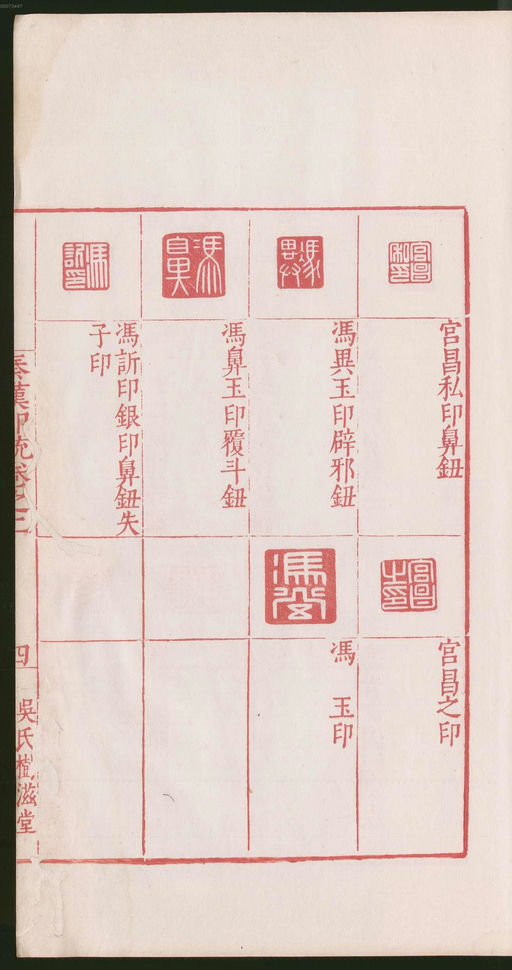 00073447
宮昌私印鼻鈕
宮昌之印
馮異玉印辟邪鈕
馮 玉印
馮鼻玉印覆斗鈕
馮訢印銀印鼻鈕失
子印
秦漢印統卷之三
四
吳氏樹滋堂